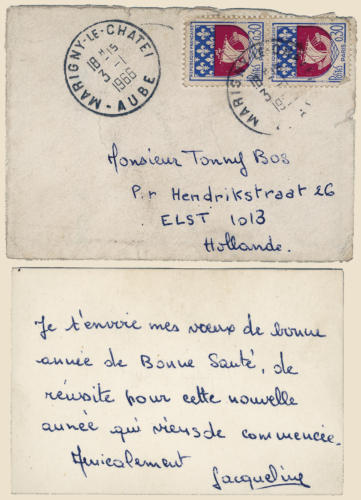 MARIGNY-LE-CHATEL
18H-15
3-1
1966
AUBE
REPUBLIQUE FRANCAISE
0,30
POSTES
PARIS
REPUBLIQUE FRANCAISE
0,30
POSTES
PARIS
Monsieur Tonny Bos
Pr Hendrikstraat 26
ELST 1013
Hollande.
Je t'envoie mes vœux de bonne
année de Bonne Santé, de
réussite pour cette nouvelle
année qui viens de commencée.
Amicalement
Jacqueline